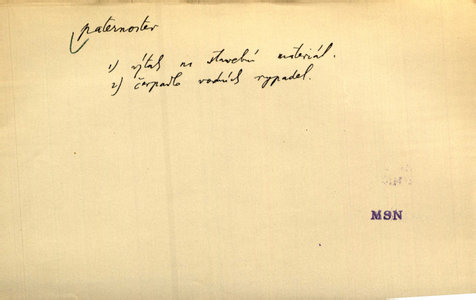 paternoster
1) výtah na stavební materiál.
2) čerpadlo vodních rypadel.
MSN